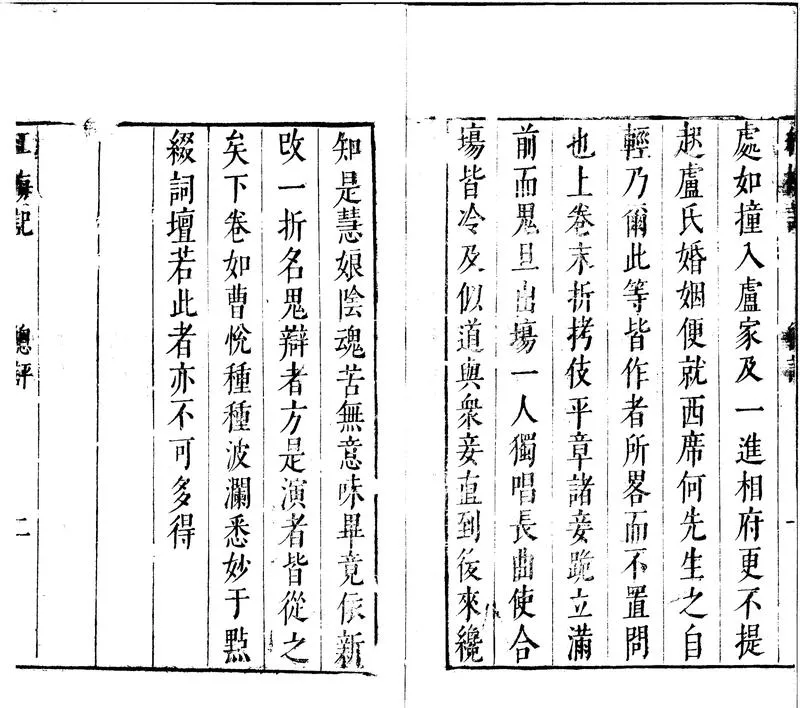 處如撞入盧家及一進相府更不提
起盧氏婚姻便就西席何先生之自
輕乃爾此等皆作者所畧而不置問
也上卷末折拷伎平章諸妾跪立滿
前而鬼旦出塲一人獨唱長曲使合
塲皆冷及似道與衆妾直到後來纔
知是慧娘陰魂苦無意味畢竟依新
改一折名鬼辯者方是演者皆從之
矣下卷如曹悅種種波瀾悉妙于點
綴詞壇若此者亦不可多得
紅梅記
總評
二